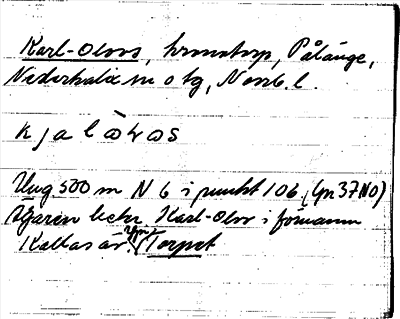 Karl-Olovs, kronotorp, Pålänge,
Nederkalix sn o tg, Norrb. l.
kjalåvas
Ung 500 m N 6 i punkt 106, (gn 37 NO)
Ägaren heter Karl-Olov i förnamn
Kallas äv. Torpet